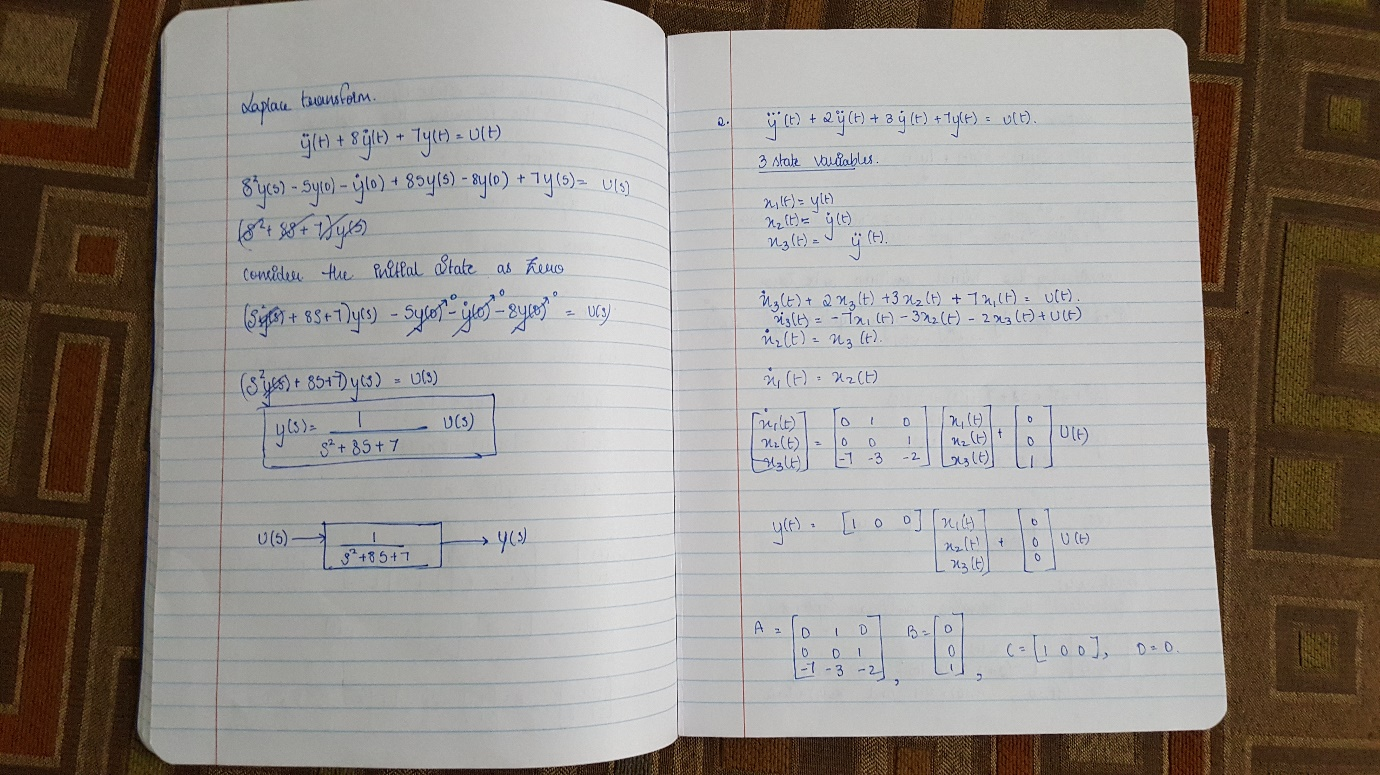 Laplace transform.
ÿ(t) + 8ẏ(t) + 7y(t) = U(t)
s²y(s) - sy(0) - ẏ(0) + 8sy(s) - 8y(0) + 7y(s) = U(s)
(s² + 8s + 7)y(s)
consider the initial state as zero
(s²y(s) + 8s+7)y(s) - sy(0)⁰ - ẏ(0)⁰ - 8y(0)⁰ = U(s)
(s²y(s) + 8s+7)y(s) = U(s)
y(s) = 1 / (s² + 8s + 7) U(s)
U(s) → 1 / (s²+8s+7) → y(s)
2. y⃛(t) + 2ÿ(t) + 3ẏ(t) + 7y(t) = U(t).
3 state variables.
x₁(t) = y(t)
x₂(t) = ẏ(t)
x₃(t) = ÿ(t).
ẋ₃(t) + 2x₃(t) + 3x₂(t) + 7x₁(t) = U(t).
ẋ₃(t) = -7x₁(t) - 3x₂(t) - 2x₃(t) + U(t)
ẋ₂(t) = x₃(t).
ẋ₁(t) = x₂(t)
[ẋ₁(t)] [0 1 0] [x₁(t)] [0]
[x₂(t)] = [0 0 1] [x₂(t)] + [0] U(t)
[x₃(t)] [-7 -3 -2] [x₃(t)] [1]
y(t) = [1 0 0] [x₁(t)] [0]
[x₂(t)] + [0] U(t)
[x₃(t)] [0]
A = [0 1 0] B = [0]
[0 0 1] [0] C = [1 0 0], D = 0.
[-7 -3 -2], [1],